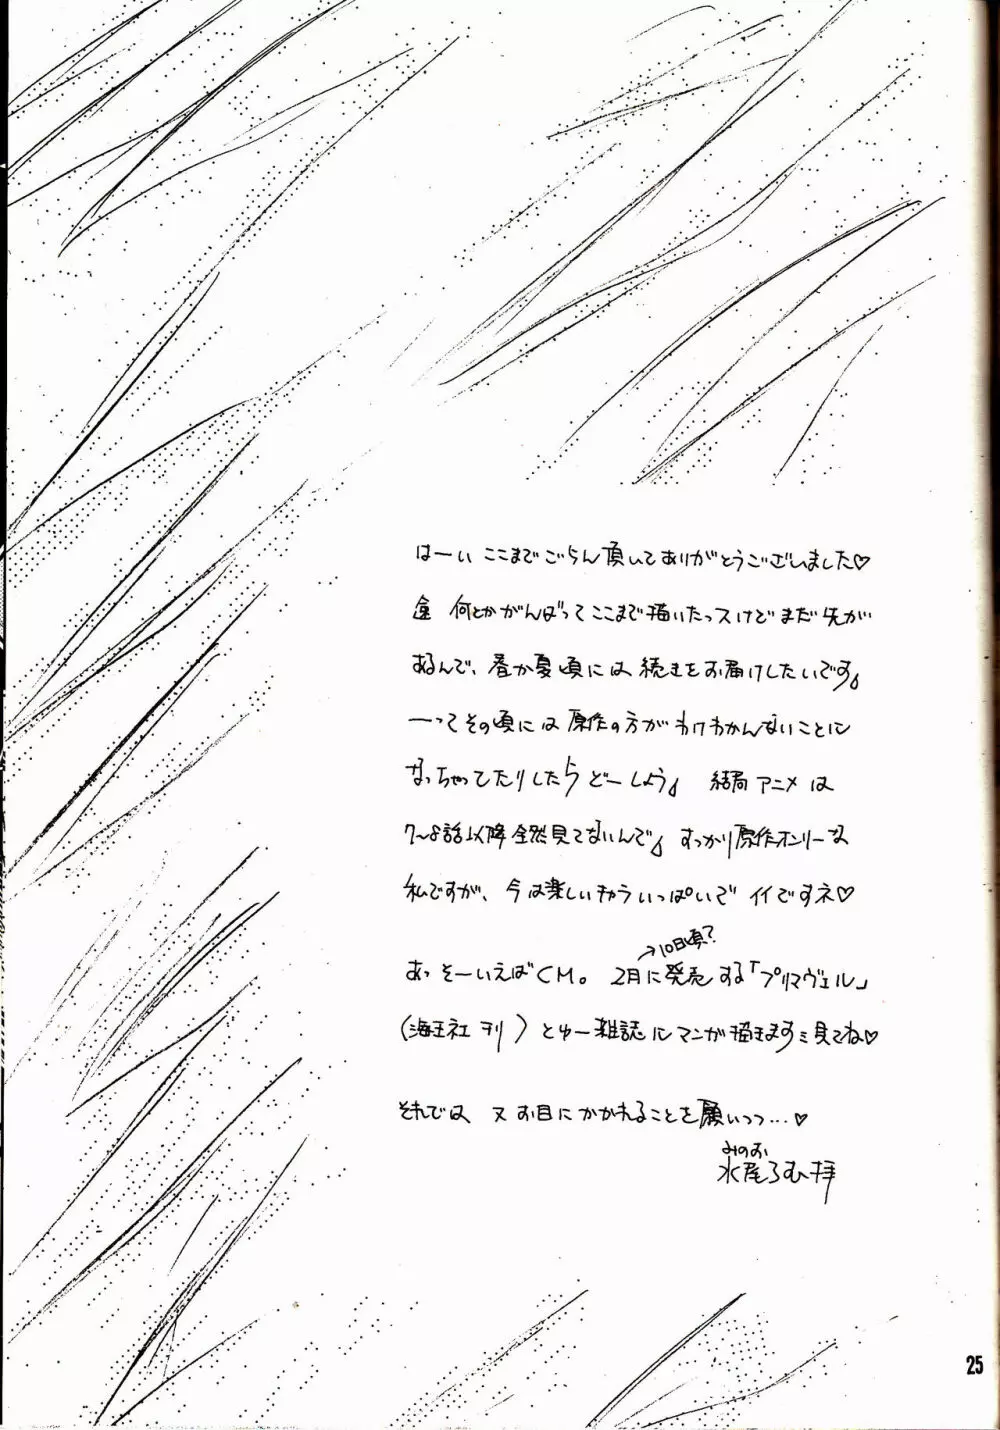 はーい ここまでごらん頂いてありがとうございました♡
何とかがんばってここまで描いたっスけどまだ先が
あるんで、春か夏頃には続きをお届けしたいです。
ーってその頃には原作の方がわけわかんないことに
なっちゃってたりしたらどーしよう。結局アニメは
7〜8話以降全然見てないんで。すっかり原作オンリーな
私ですが、今は楽しいキャラいっぱいでイイですネ♡
→10日頃?
あっそーいえばCM。2月に発売する「プリマヴェル」
(海王社ヨリ)とゆー雑誌にマンガ描きます 見てね♡
それでは 又お目にかかれることを願いつつ…♡
みのお
水尾ろむ拝
25